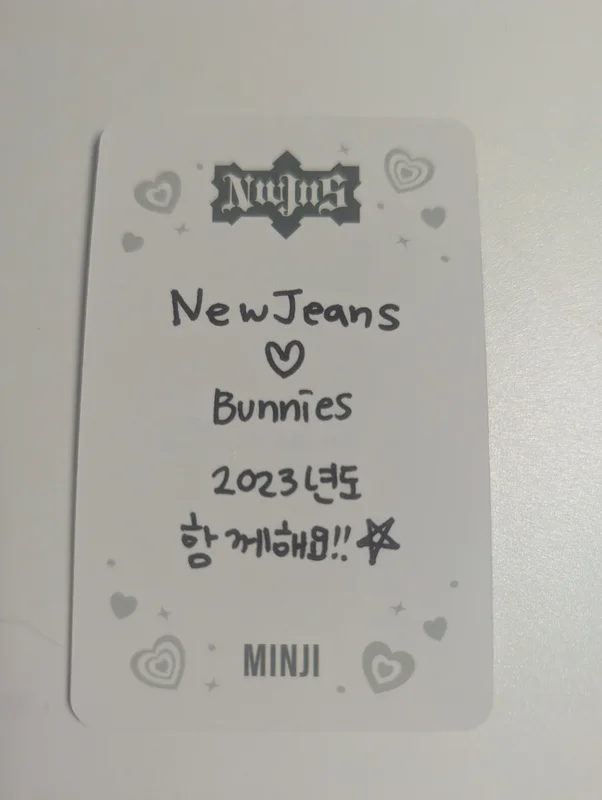 NwJnS
NewJeans
♡
Bunnies
2023년도
함께해요!! ☆
MINJI